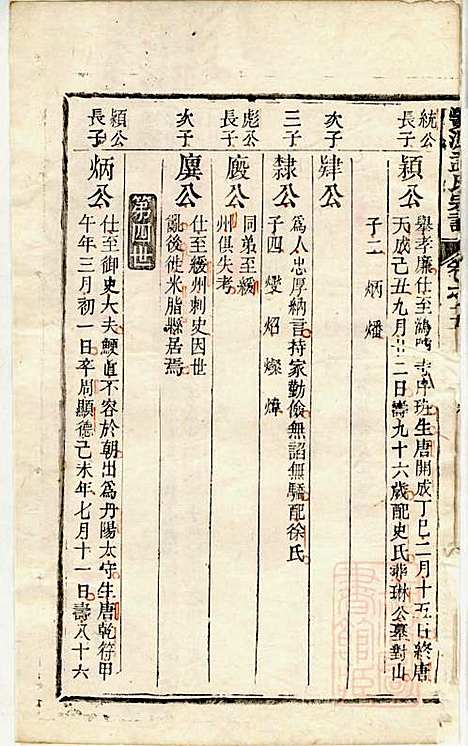 統公
長子
穎公
舉孝廉仕至鴻
寺序班生唐開成丁巳二月十五日終唐
天成己丑九月廿二日壽九十六歲配史氏
琳公墓對山
子二 炳 燔
次子
肄公
三子
隸公
爲人忠厚納言持家勤儉無諂無驕配徐氏
子四 燮 炤 燦 煒
彪公
長子
廄公
同弟至綏
州俱失考
次子
廙公
仕至綏州刺史因世
亂後徙米脂縣居焉
第四世
穎公
長子
炳公
仕至御史大夫鯁直不容於朝出爲丹陽太守生唐乾符甲
午年三月初一日卒周顯德己未年七月十一日壽八十六